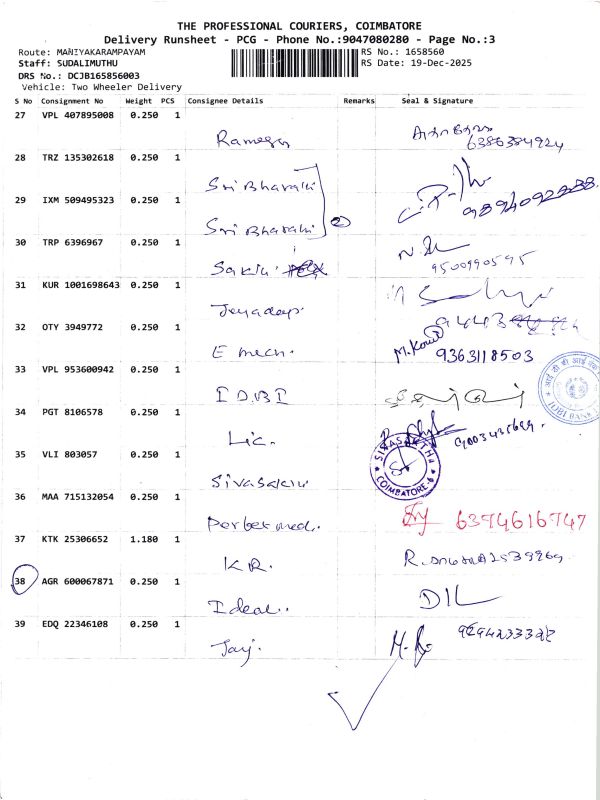 THE PROFESSIONAL COURIERS, COIMBATORE
Delivery Runsheet - PCG - Phone No.:9047080280 - Page No.:3
Route: MANIYAKARAMPAYAM RS No.: 1658560
Staff: SUDALIMUTHU RS Date: 19-Dec-2025
DRS No.: DCJB165856003
Vehicle: Two Wheeler Delivery
S No Consignment No Weight PCS Consignee Details Remarks Seal & Signature
27 VPL 407895008 0.250 1
Ramesh
6386384924
28 TRZ 135302618 0.250 1
Sri Bharathi
29 IXM 509495323 0.250 1
Sri Bharathi 2
30 TRP 6396967 0.250 1
Sakthi 9500990595
31 KUR 1001698643 0.250 1
Jeyadeep
32 OTY 3949772 0.250 1
E mech. 9363118503
33 VPL 953600942 0.250 1
IDBI
IDBI BANK
34 PGT 8106578 0.250 1
Lic.
35 VLI 803057 0.250 1
SIVASAKTHI
COIMBATORE-6
Sivasakthi
36 MAA 715132054 0.250 1
6394616747
37 KTK 25306652 1.180 1
K.R.
38 AGR 600067871 0.250 1
Ideal.. DIL
39 EDQ 22346108 0.250 1
Jay.